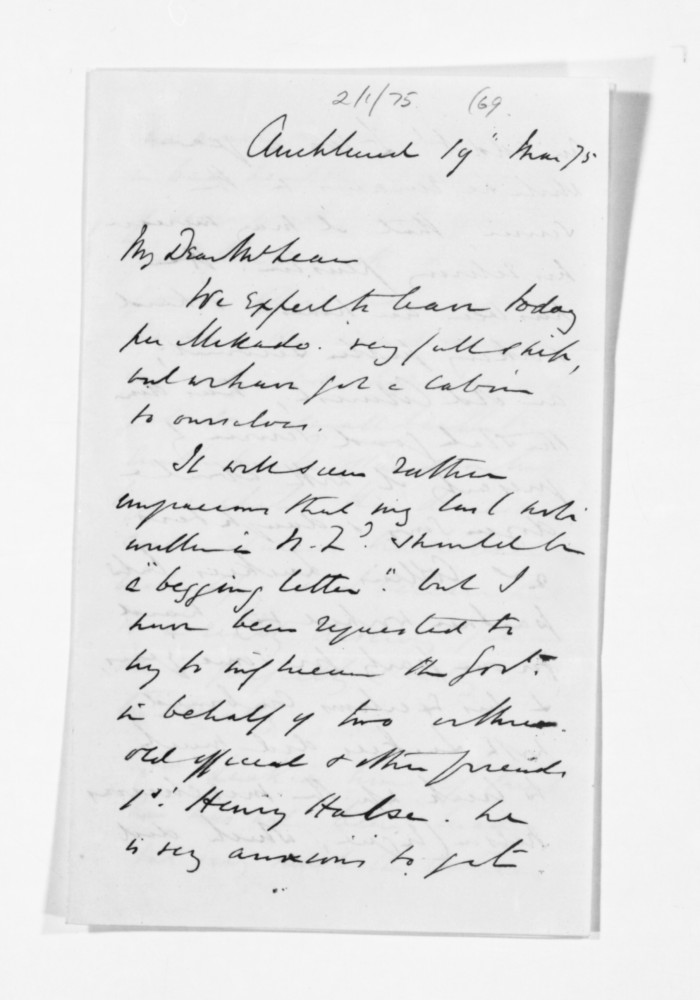 2/1/75 (69
Auckland 19" Mar 75
My Dear McLean
We expect to leave today
per Mikado. very full ship,
but we have got a cabin
to ourselves.
It will seem rather
that my last note
written in N.Z? should be
a "begging letter". but I
have been requested to
try to influence the Govt.
in behalf of two or three
old official & other friends
1st. Henry Halse. he
is very anxious to get